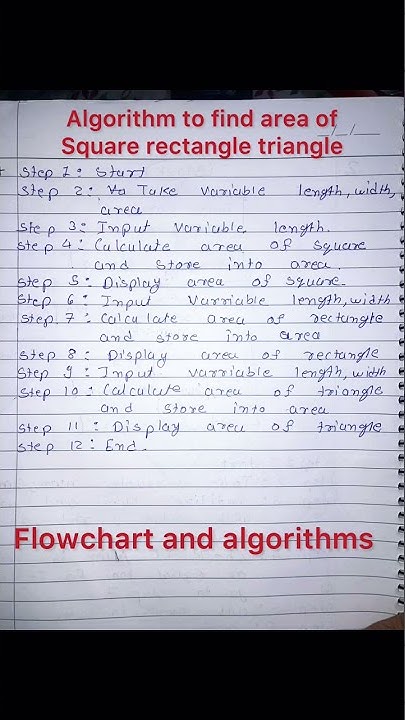 Algorithm to find area of
Square rectangle triangle
_/_/__
Step 1 : Start
Step 2 : Take variable length, width,
area
Step 3 : Input variable length.
Step 4 : Calculate area of square
and store into area.
Step 5 : Display area of square.
Step 6 : Input variable length, width
Step 7 : Calculate area of rectangle
and store into area
Step 8 : Display area of rectangle
Step 9 : Input variable length, width
Step 10 : Calculate area of triangle
and store into area
Step 11 : Display area of triangle
Step 12 : End.
Flowchart and algorithms